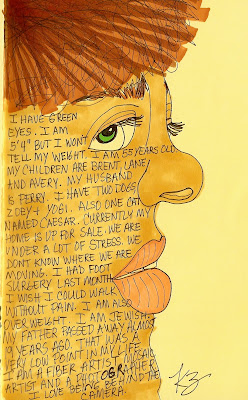 I HAVE GREEN
EYES. I AM
5'4" BUT I WONT
TELL MY WEIGHT. I AM 55 YEARS OLD
MY CHILDREN ARE BRENT, LANEY
AND AVERY. MY HUSBAND
IS PERRY. I HAVE TWO DOGS
ZOEY + YOGI. ALSO ONE CAT
NAMED CAESAR. CURRENTLY MY
HOME IS UP FOR SALE. WE ARE
UNDER A LOT OF STRESS. WE
DON'T KNOW WHERE WE ARE
MOVING. I HAD FOOT
SURGERY LAST MONTH.
I WISH I COULD WALK
WITHOUT PAIN. I AM ALSO
OVER WEIGHT. I AM JEWISH.
MY FATHER PASSED AWAY ALMOST
9 YEARS AGO. THAT WAS A
VERY LOW POINT IN MY LIFE.
I AM A FIBER ARTIST, MOSAIC
ARTIST AND A PHOTOGRAPHER
I LOVE BEING BEHIND THE
CAMERA.